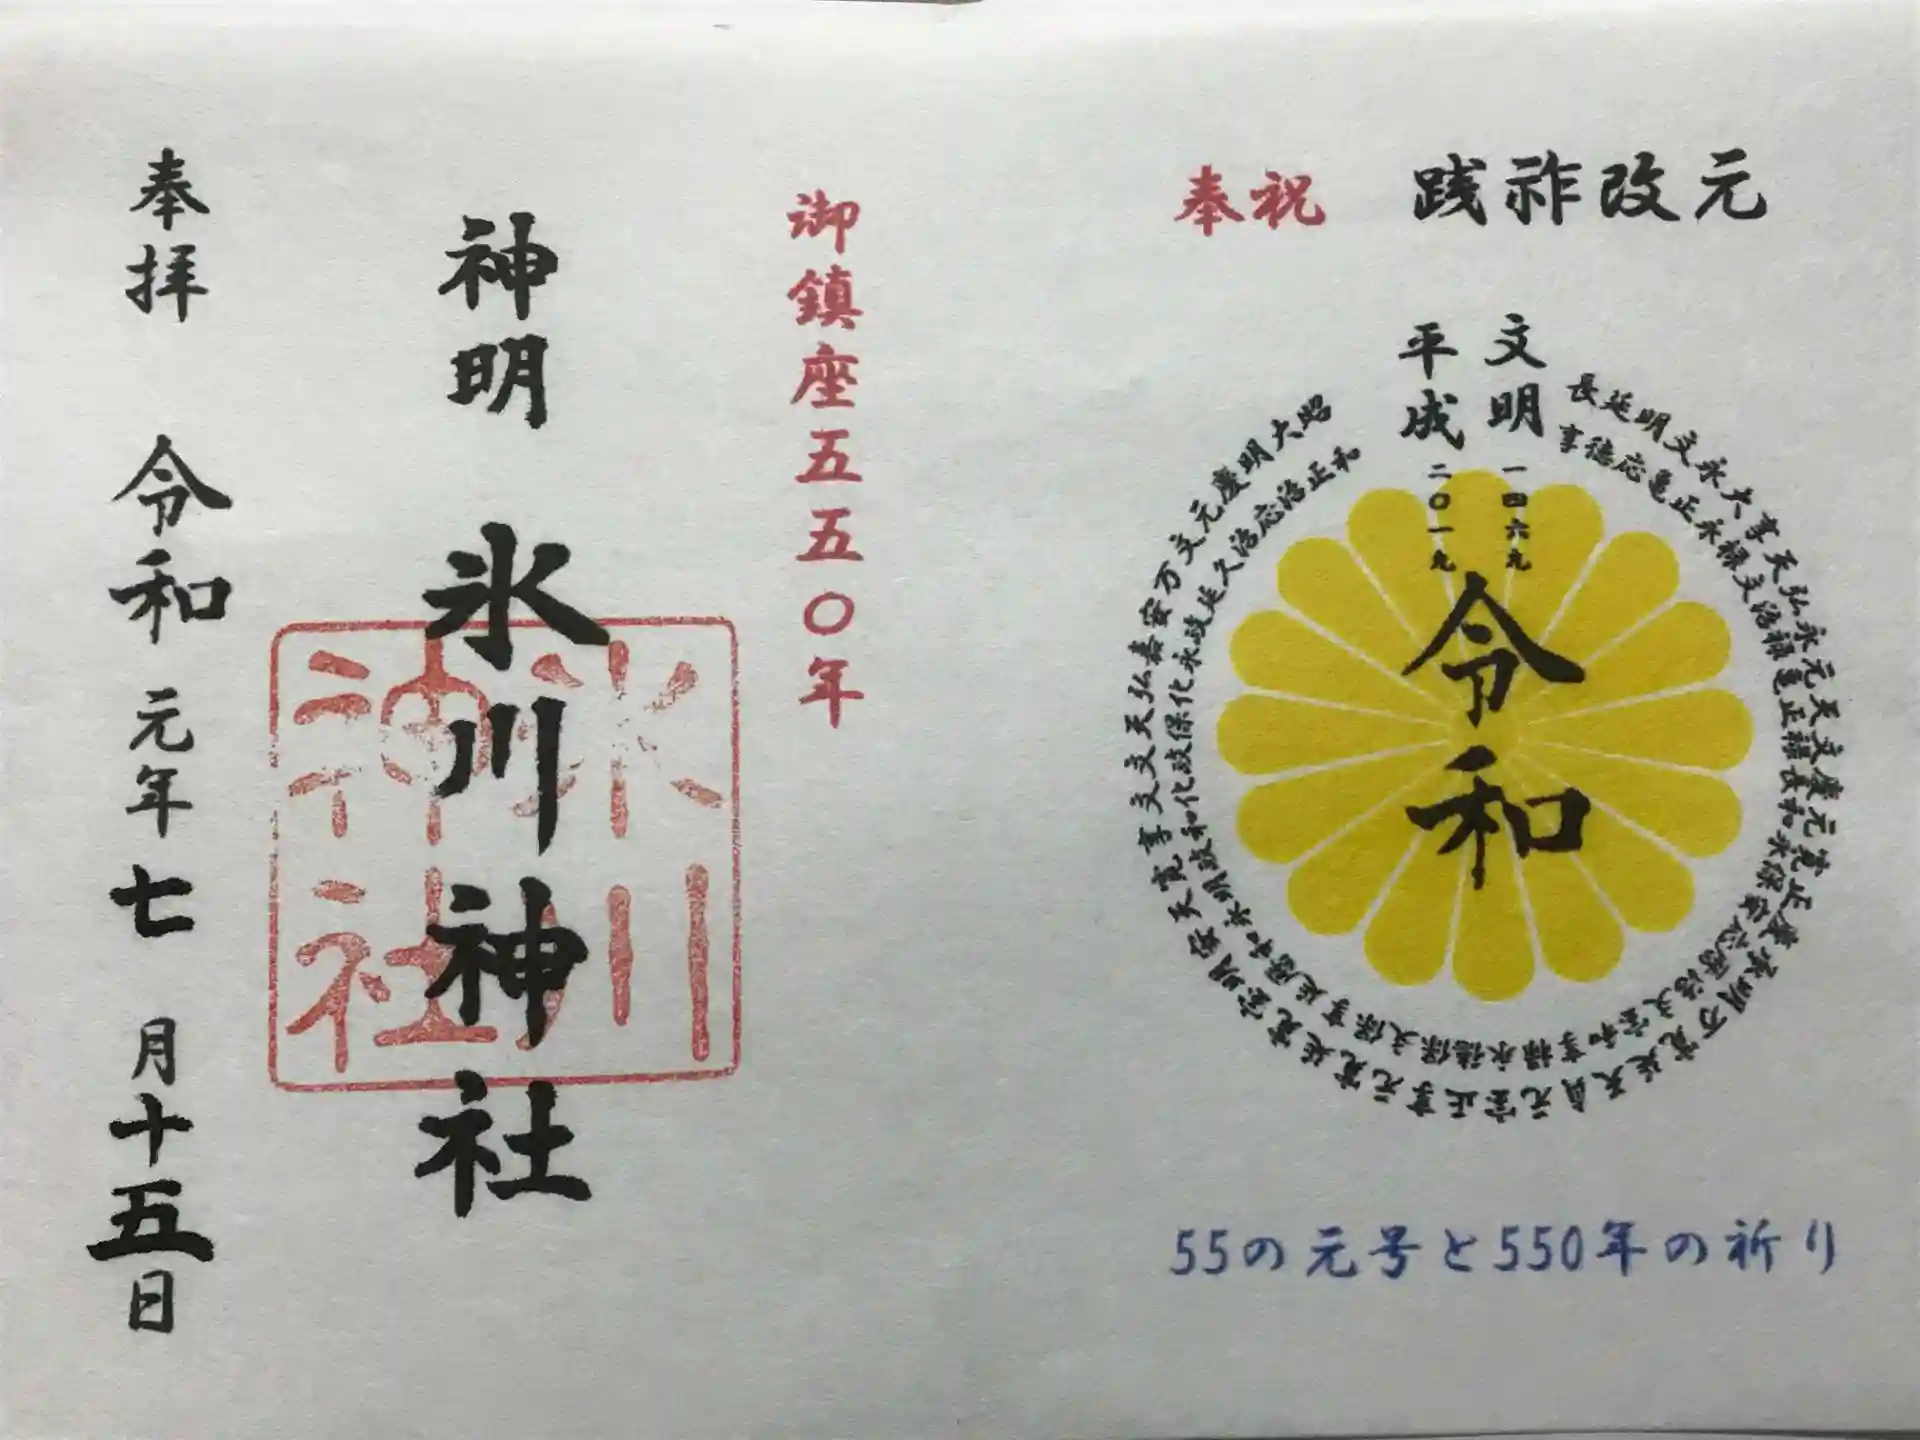 奉祝 践祚改元
文明 一四六九
平成 二〇一九
令和
長延明文永大享天弘永元天文慶元寛正慶承明万寛延天貞元宝正享元寛延寛宝明安天寛享文文天弘嘉安万文元慶明大昭
享徳応亀正永禄文治禄亀正禄長和永保安応暦治文宝和享禄永徳保文保享延暦和永明政和化政保化永政延久治応治正和
55の元号と550年の祈り
御鎮座五五〇年
神明 氷川神社
氷川
神社
奉拝 令和元年七月十五日